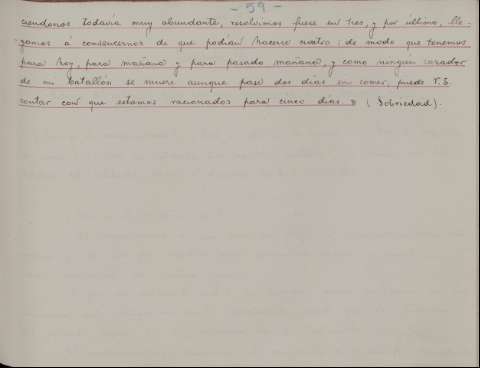 - 59 -
ciendonos todavia muy abundante, resolvimos fuese en tres, y por último, lle-
gamos á convencernos de que podian hacerse cuatro; de modo que tenemos
para hoy, para mañana y para pasado mañana, y como ningun cazador
de mi batallón se muere aunque pase dos dias sin comer, puede V.E.
contar con que estamos racionados para cinco dias » (Sobriedad).